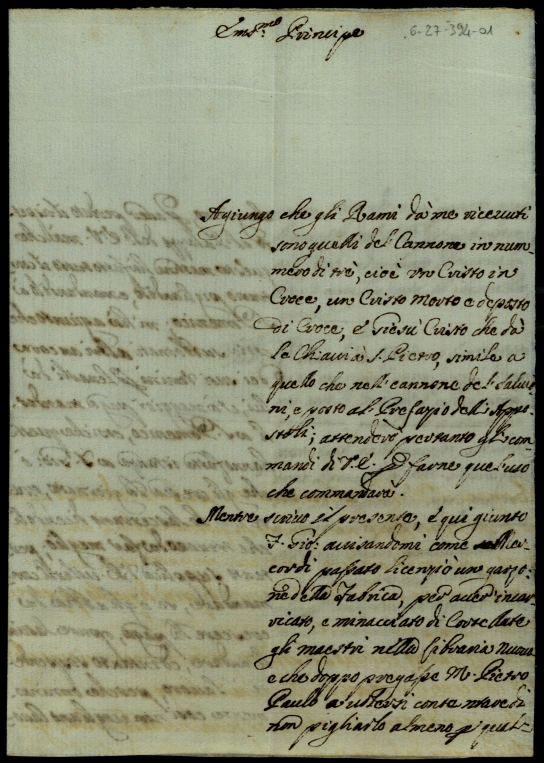 Em.mo Principe
6-27-394-01
Agiungo che gli Rami dà me riceuuti
sono quelli del Cannone in num-
mero di trè, cioè vn Cristo in
Croce, un Cristo Morto e deposto
di Croce, e Giesù Cristo che dà
le Chiaui a S. Pietro, simile a
quello che nell cannone del Salui
ni, e posto al Prefazio dell Apo-
stoli; attenderò pertanto gli com
mandi di V.E. p farne quel uso
che commandarà.
Mentre scriuo il presente, è qui giunto
F. Gio: auisandomi come Mer-
cordi passato licenziò un garzo-
ne della Fabrica, per auer incar-
icato, e minacciato di Cortellate
gli maestri nella Libraria Nuoua
e che doppo pregasse M. Pietro
Paulo a uolersi contentare di
non pigliarlo almeno p qual-